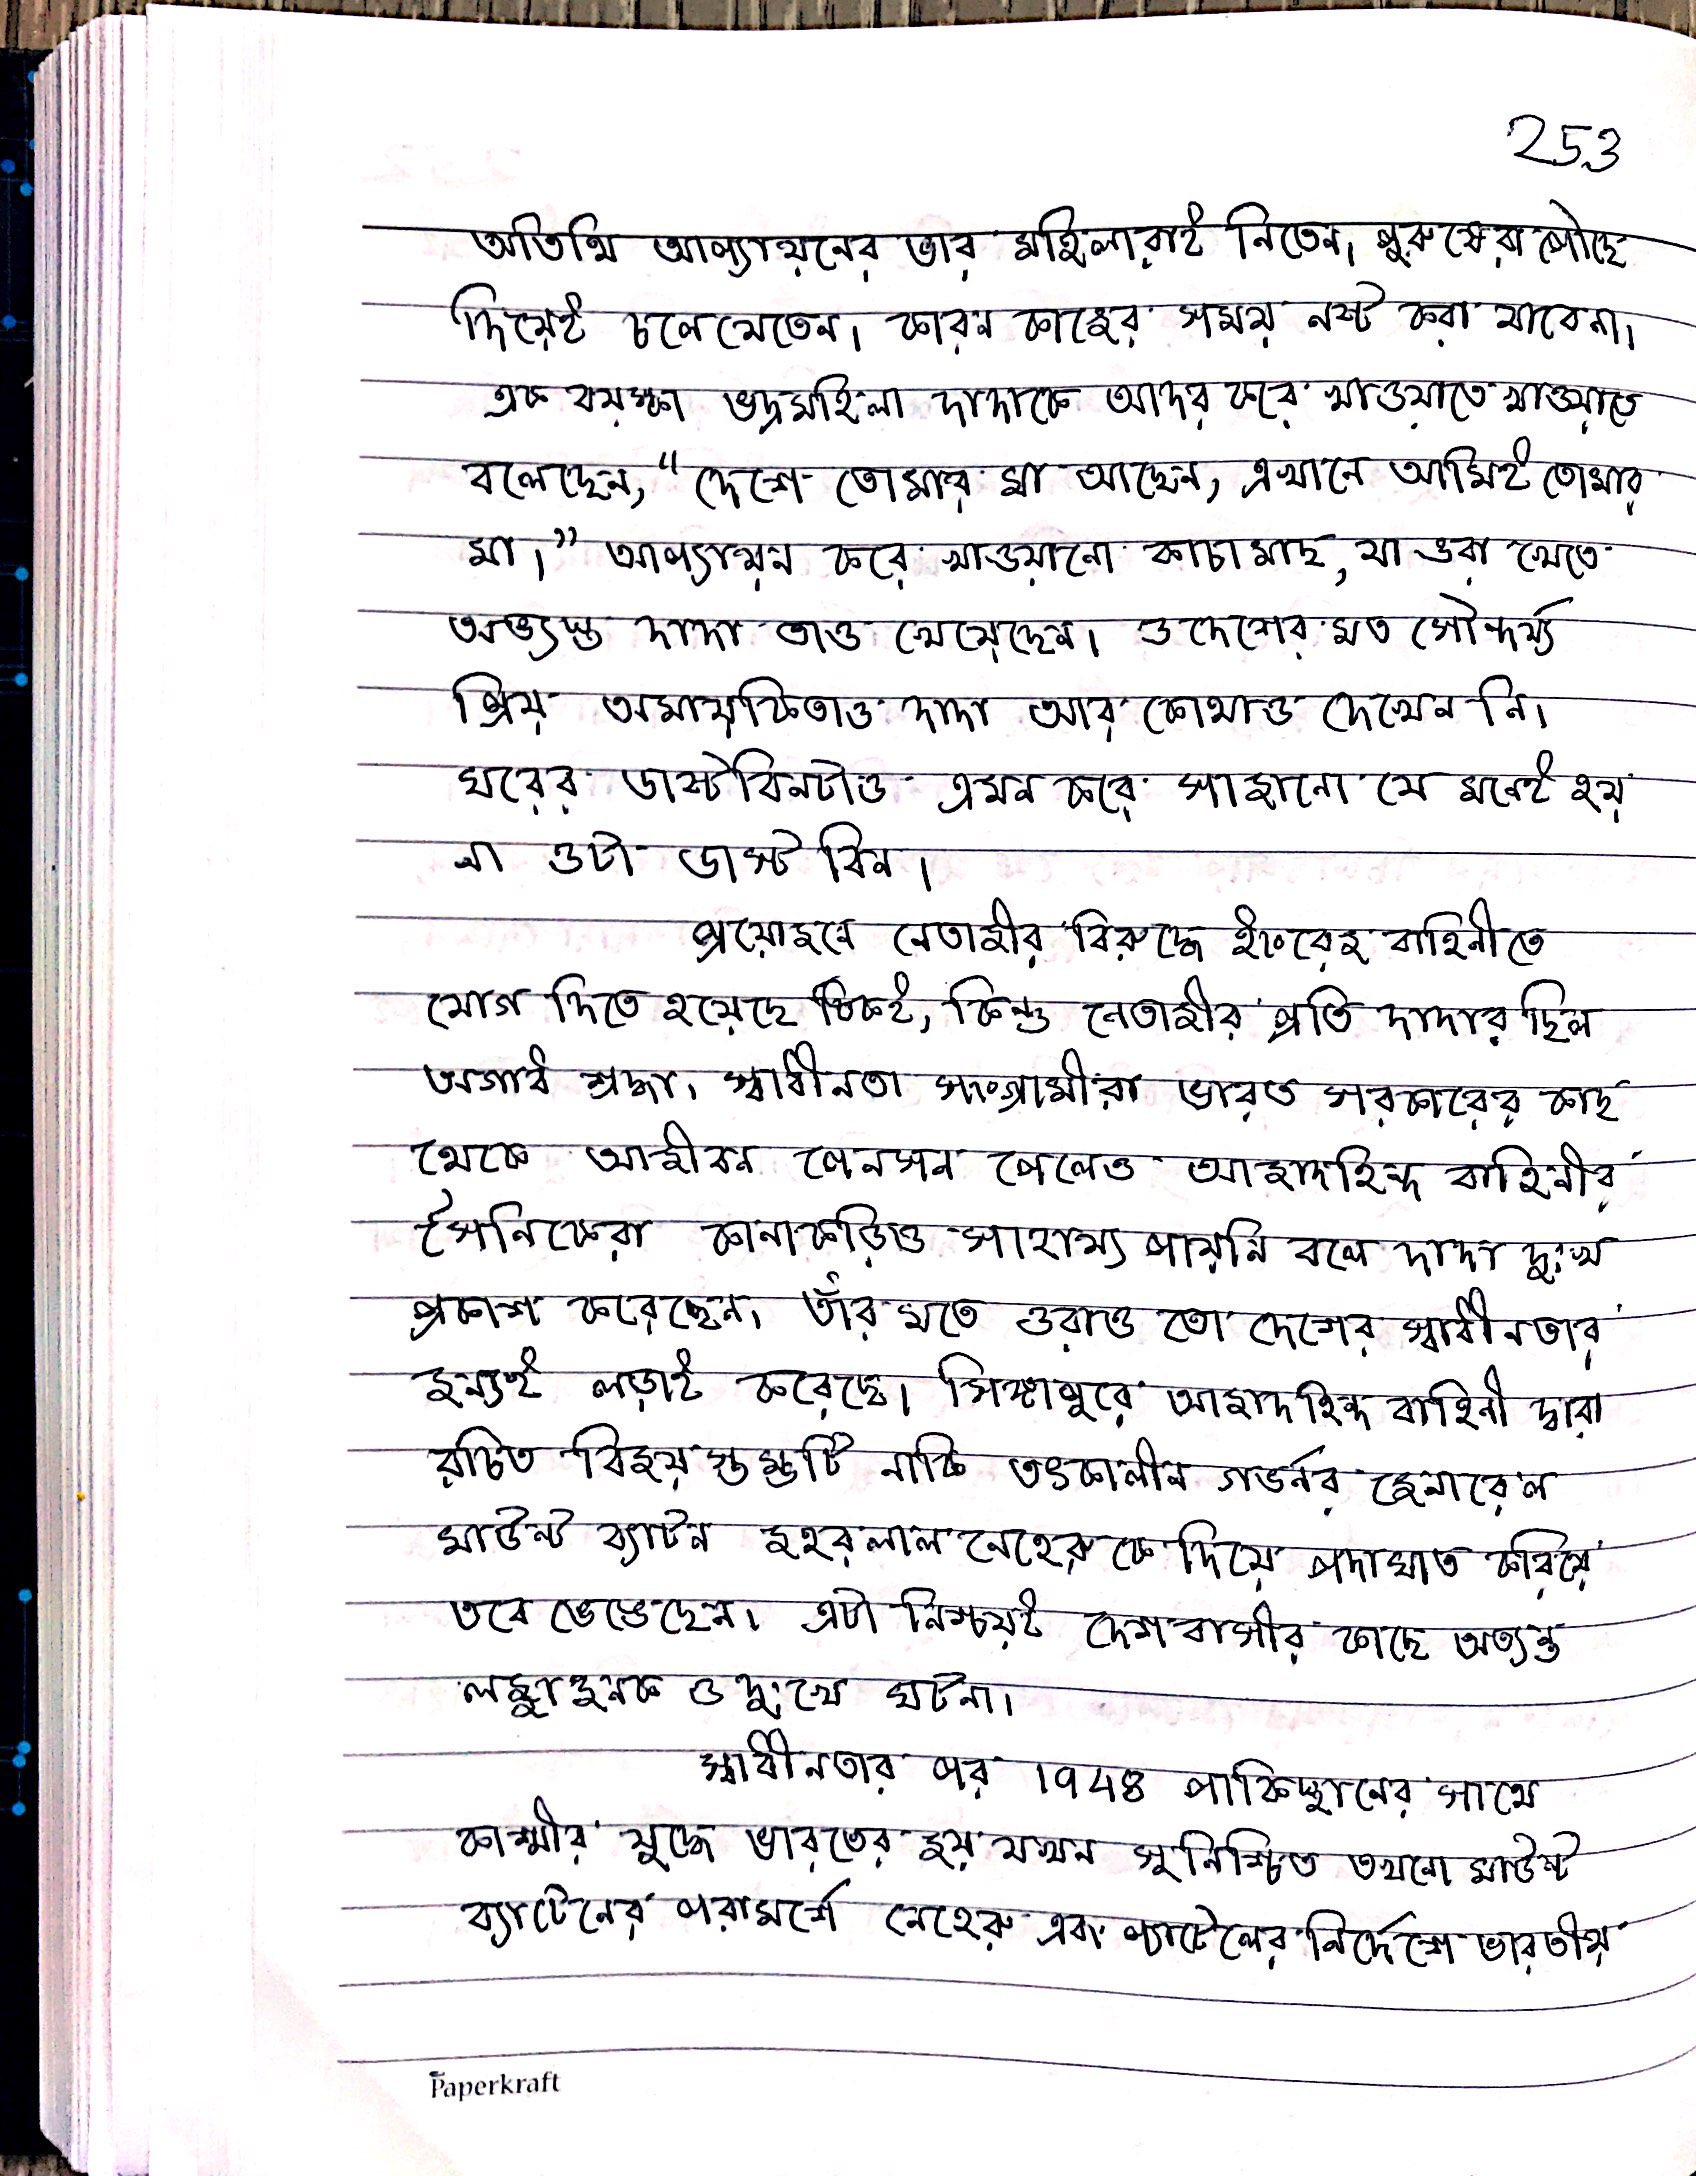 253
অতিথি আপ্যায়নের ভার মহিলারাই নিতেন। পুরুষেরা পৌছে
দিয়েই চলে যেতেন। কারন কাজের সময় নষ্ট করা যাবেনা।
এক বয়স্কা ভদ্রমহিলা দাদাকে আদর করে খাওয়াতে খাওয়াতে
বলেছেন, “দেশে তোমার মা আছেন, এখানে আমিই তোমার
মা।” আপ্যায়ন করে খাওয়ানো কাচা মাছ, যা ওরা খেতে
অভ্যস্ত দাদা তাও খেয়েছেন। ওদেশের মত সৌন্দর্য্য
প্রিয় অমায়কিতাও দাদা আর কোথাও দেখেন নি।
ঘরের ডাস্টবিনটাও এমন করে সাজানো যে মনেই হয়
না ওটা ডাস্ট বিন।
প্রয়োজনে নেতাজীর বিরুদ্ধে ইংরেজ বাহিনীতে
যোগ দিতে হয়েছে ঠিকই, কিন্তু নেতাজীর প্রতি দাদার ছিল
অগাধ শ্রদ্ধা। স্বাধীনতা সংগ্রামীরা ভারত সরকারের কাছ
থেকে আজীবন পেনসন পেলেও আজাদহিন্দ বাহিনীর
সৈনিকেরা কানাকড়িও সাহায্য পায়নি বলে দাদা দুঃখ
প্রকাশ করেছেন। তাঁর মতে ওরাও তো দেশের স্বাধীনতার
জন্যই লড়াই করেছে। সিঙ্গাপুরে আজাদহিন্দ বাহিনী দ্বারা
রচিত বিজয় স্তম্ভটি নাকি তৎকালীন গভর্নর জেনারেল
মাউন্ট ব্যাটন জহরলাল নেহেরু কে দিয়ে পদাঘাত করিয়ে
তবে ভেঙেছেন। এটা নিশ্চয়ই দেশ বাসীর কাছে অত্যন্ত
লজ্জাজনক ও দুঃখে ঘটনা।
স্বাধীনতার পর 1948 পাকিস্থানের সাথে
কাশ্মীর যুদ্ধে ভারতের জয় যখন সুনিশ্চিত তখনো মাউন্ট
ব্যাটেনের পরামর্শে নেহেরু এবং প্যাটেলের নির্দেশে ভারতীয়
Paperkraft